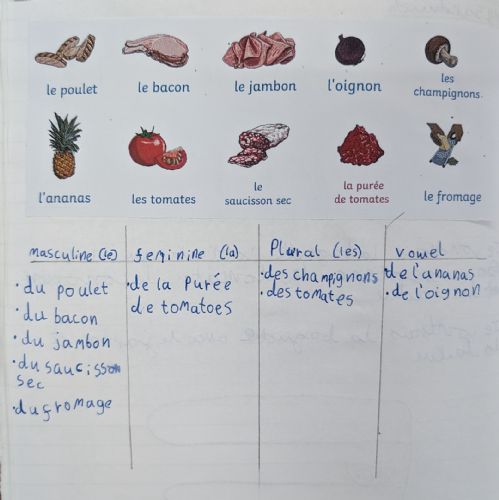 le poulet
le bacon
le jambon
l'oignon
les
champignons.
l'ananas
les tomates
le
saucisson sec
la purée
de tomates
le fromage
masculine (le)
feminine (la)
Plural (les)
vowel
• du poulet
• du bacon
• du jambon
• du saucisson
sec
• du fromage
• de la Purée
de tomatoes
• des champignons
• des tomates
• de l'ananas
• de l'oignon